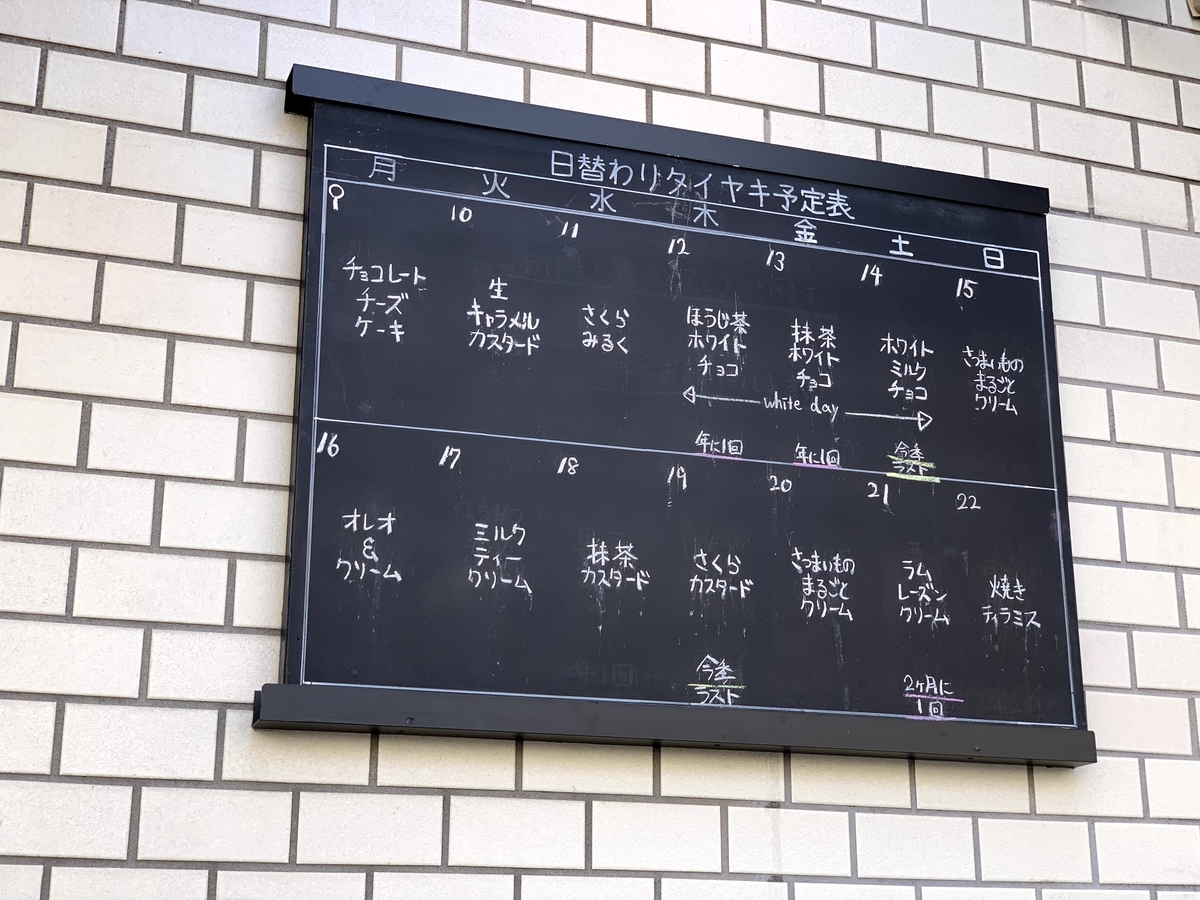 日替わりタイヤキ予定表
月 火 水 木 金 土 日
9
チョコレート
チーズ
ケーキ
10
生
キャラメル
カスタード
11
さくら
みるく
12
ほうじ茶
ホワイト
チョコ
年に1回
13
抹茶
ホワイト
チョコ
年に1回
14
ホワイト
ミルク
チョコ
今季
ラスト
white day
15
さつまいもの
まるごと
クリーム
16
オレオ
&
クリーム
17
ミルク
ティー
クリーム
18
抹茶
カスタード
19
さくら
カスタード
今季
ラスト
20
さつまいもの
まるごと
クリーム
21
ラム
レーズン
クリーム
2ケ月に
1回
22
焼き
ティラミス